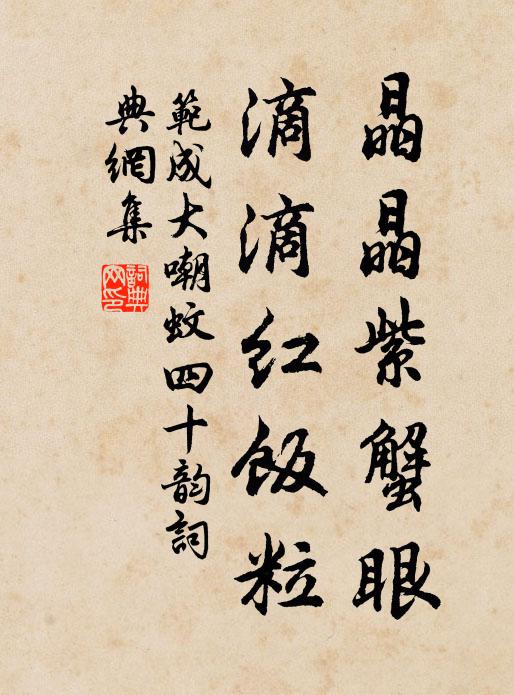 晶晶紫蟹眼
滴滴紅飯粒
範成大嘲蚊四十韵詞
典網集
詞典
网印